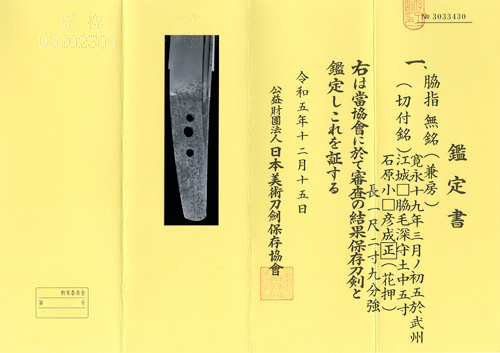 № 3033430
鑑定書
一、脇指 無銘(兼房)
(切付銘)寛永十九年三月ノ初五於武州
江城□脇毛深守土中五寸
石原小□彦成正(花押)
長一尺二寸九分強
右は當協會に於て審査の結果保存刀剣と
鑑定しこれを証する
令和五年十二月十五日
公益財團法人日本美術刀剣保存協會
教育委員会
第 号